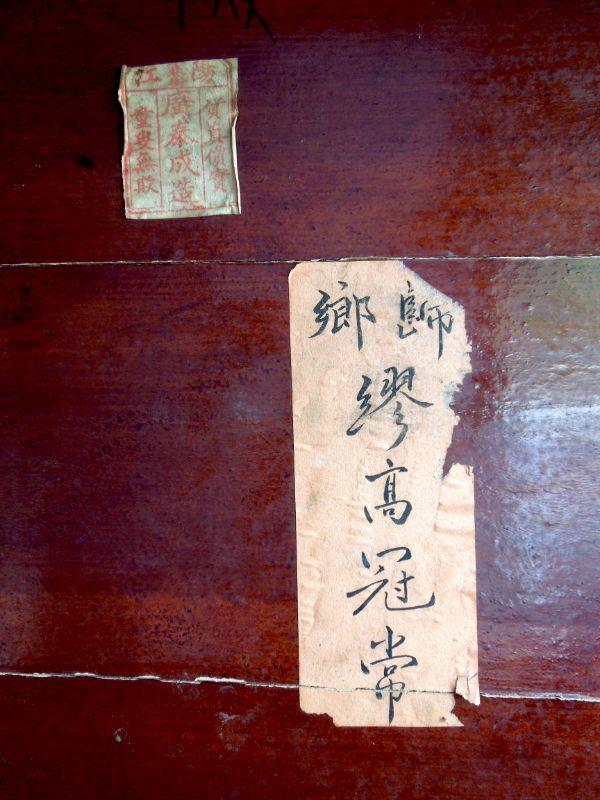 陽江
貨真價實
廣泰成造
童叟無欺
鄉
繆高冠常